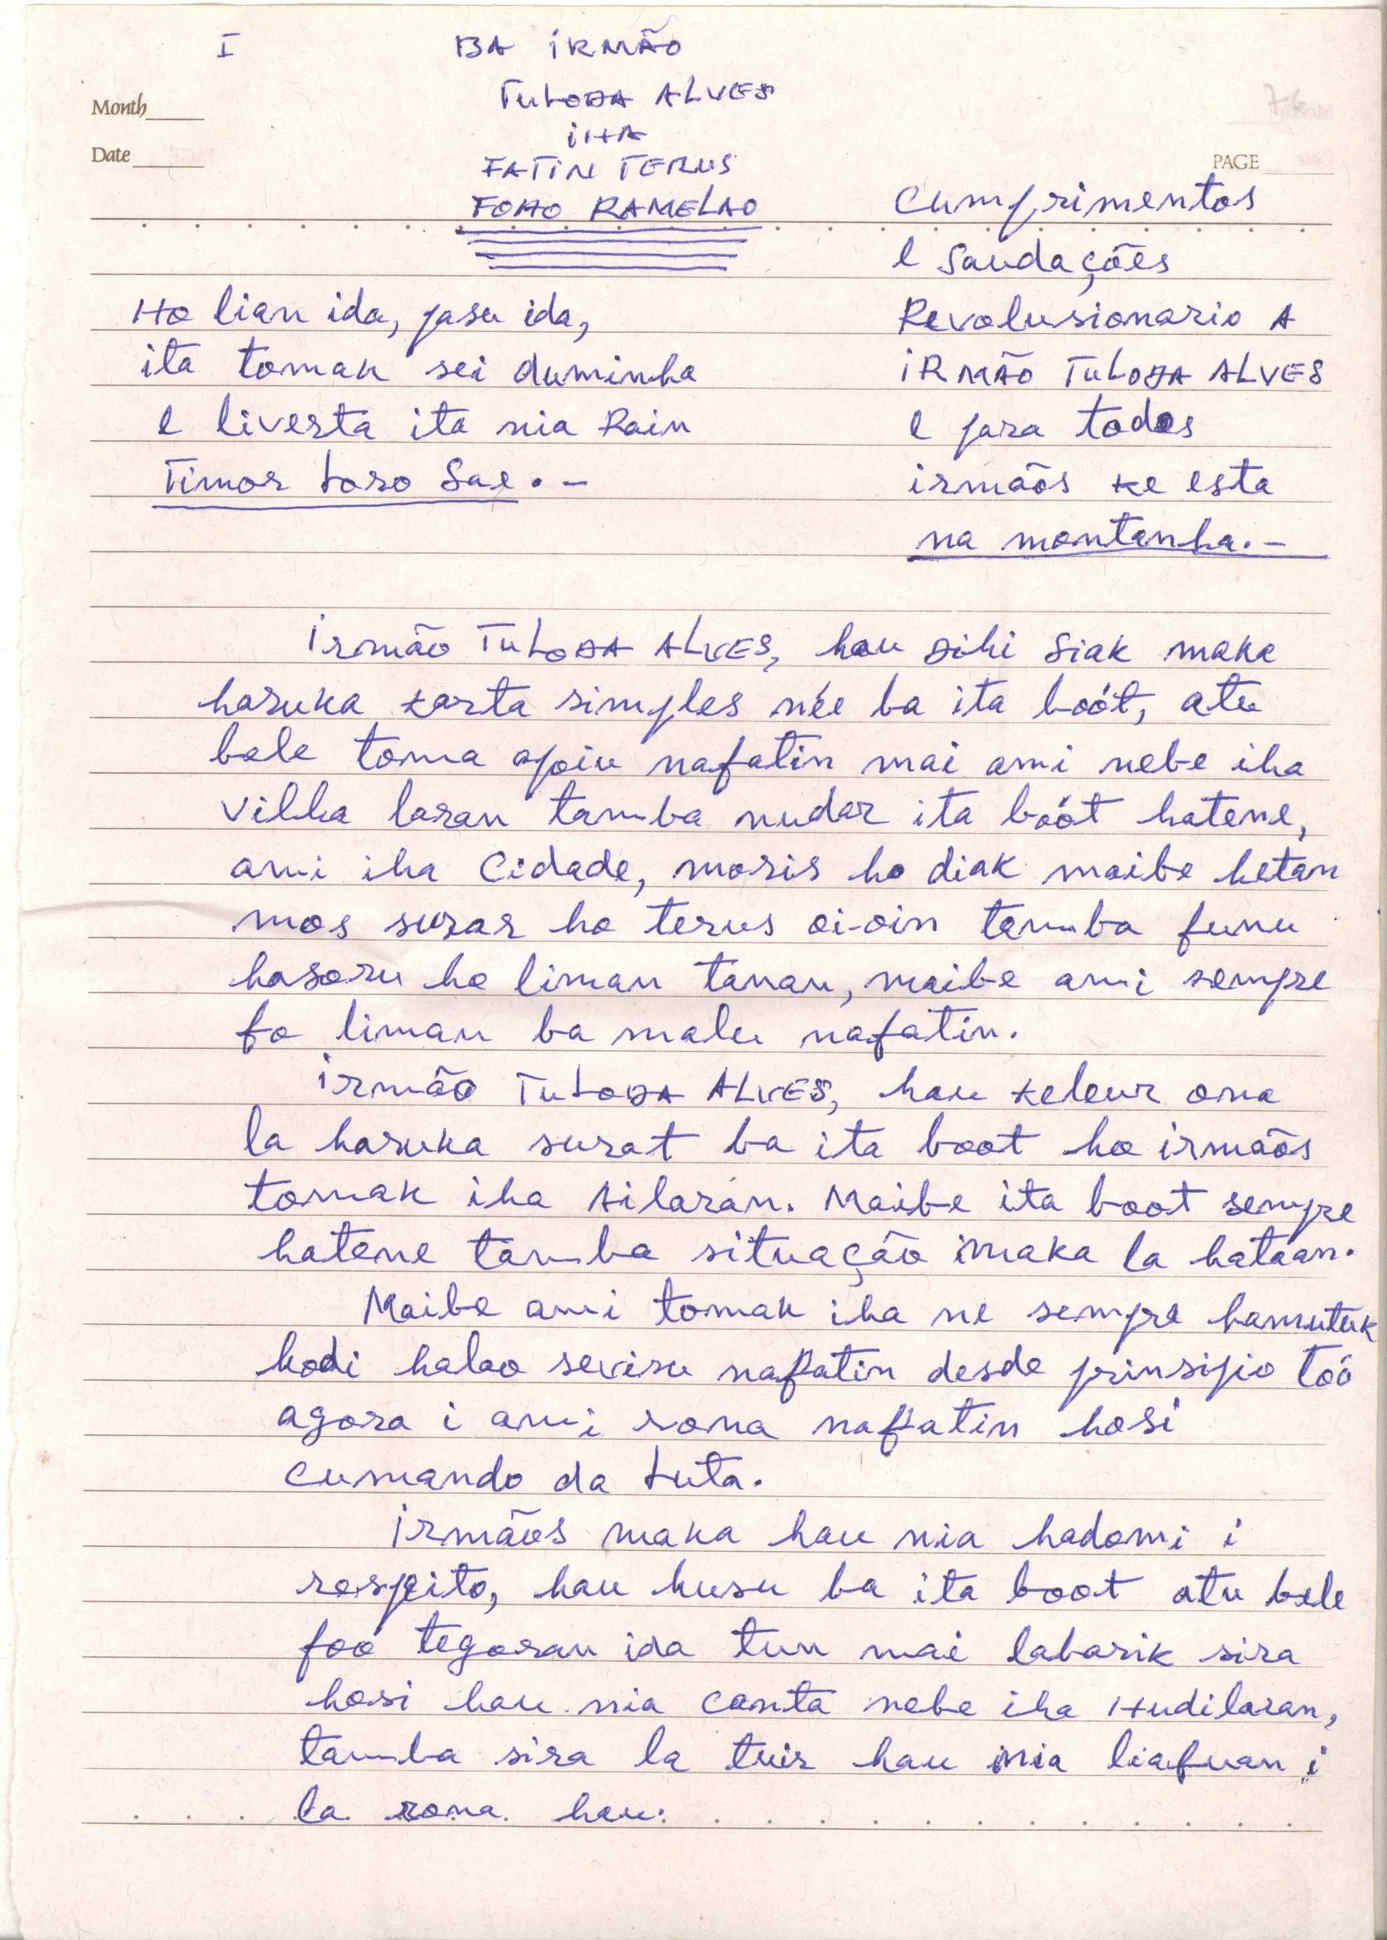 I
BA IRMÃO
TULODA ALVES
IHA
FATIN TERUS
FOHO RAMELAO
Month
Date
PAGE
Cumprimentos
e Saudações
Revolusionario A
IRMÃO TULODA ALVES
e para todos
irmãos ke esta
na montanha.-
Ho lian ida, pasu ida,
ita tomak sei duminha
e liverta ita nia Rain
Timor Loro Sae.-
Irmão TULODA ALVES, hau dihi siak maka
haruka karta simples née ba ita boót, atu
bele toma apoiu nafatin mai ami nebe iha
Vilha laran tamba nudar ita boót hatene,
ami iha Cidade, moris ho diak maibe hetan
mos susar ho terus oi-oin tamba funu
hasoru ho liman tanan, maibe ami sempre
fo liman ba malu nafatin.
Irmão TULODA ALVES, hau keleur ona
la haruka surat ba ita boot ho irmãos
tomak iha Ailaran. Maibe ita boot sempre
hatene tamba situação maka la hataan.
Maibe ami tomak iha ne sempre hamutuk
hodi halao sevisu nafatin desde prinsipio tóó
agora i ami rona nafatin hosi
Cumando da Luta.
Irmãos maka hau nia hadomi i
respeito, hau husu ba ita boot atu bele
foo tegoran ida tun mai labarik sira
hosi hau nia Canta nebe iha Hudilaran,
tamba sira la tuir hau nia liafuan i
la rona hau.